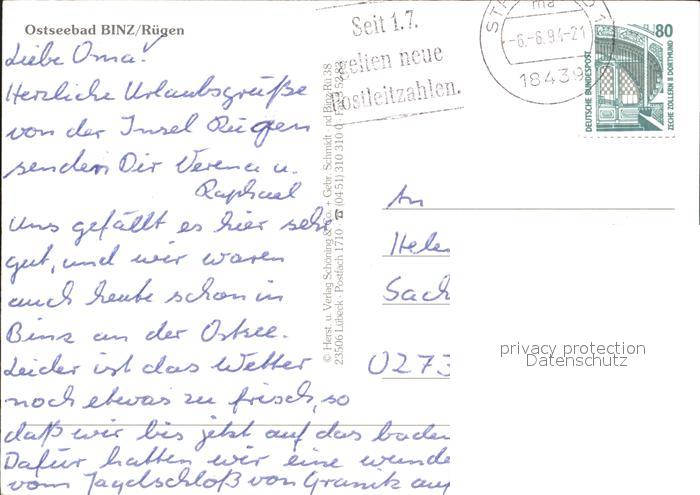 Ostseebad BINZ/Rügen
Liebe Oma!
Herzliche Urlaubsgrüße
von der Insel Rügen
senden Dir Verena u.
Raphael
Uns gefällt es hier sehr
gut, und wir waren
auch heute schon in
Binz an der Ostsee.
Leider ist das Wetter
noch etwas zu frisch, so
daß wir bis jetzt auf das baden
Dafür hatten wir eine wunde
vom Jagdschloß von Granitz auf
© Herst. u. Verlag Schöning & Co. + Gebr. Schmidt · Binz-Rü 38
23506 Lübeck · Postfach 1710 · ☎ (04 51) 310 310
Seit 1.7.
gelten neue
Postleitzahlen.
-6.-6.94-21
18439
80
DEUTSCHE BUNDESPOST
ZECHE ZOLLERN II DORTMUND
An
Hele
Sach
0273
privacy protection
Datenschutz